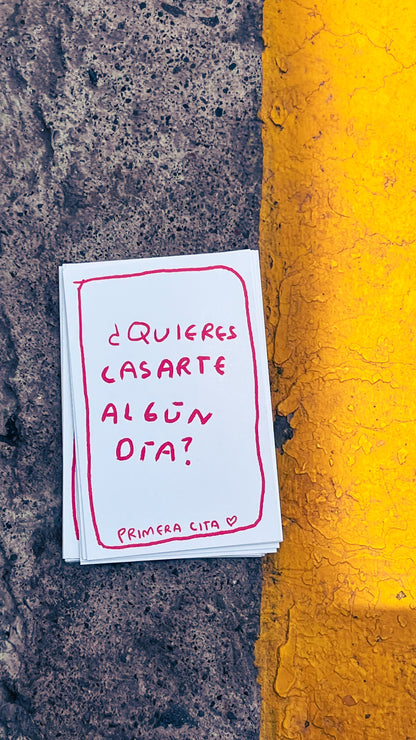 ¿QUIERES
CASARTE
ALGÚN
DÍA?
PRIMERA CITA ♡